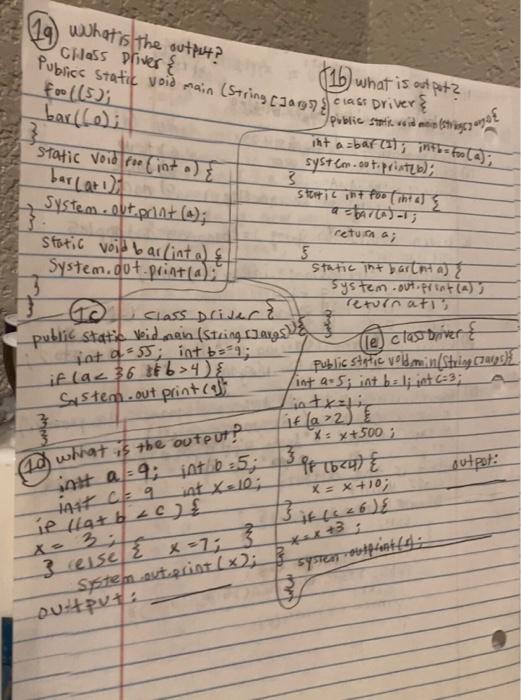 1a What is the output?
Class Driver {
Public static void main (String []args) {
foo((5);
bar((0);
}
static void foo (int a) {
bar(a+1);
System.out.print (a);
}
static void bar(int a) {
System.out.print(a);
}
}
1b what is output?
class Driver {
public static void main(String[] args) {
int a=bar(2); int b=foo(a);
system.out.print(b);
}
static int foo(int a) {
a=bar(a)-1;
return a;
}
static int bar(int a) {
system.out.print(a);
return a+1;
}
}
1c class Driver {
public static void main(String []args) {
int a=55; int b=-9;
if (a< 36 && b>4) {
System.out print(a);
}
}
1d what is the output?
int a = 9; int b=5;
int c = 9 int x=10;
if ((a+b <c) {
x= 3;
} else { x=7; }
system.out.print(x);
output:
1e class Driver {
public static void main(String []args){
int a=5; int b=1; int c=3;
int x=1;
if (a>2) {
x= x+500;
}
if (b<4) {
x = x+10;
} if (c <6) {
x=x+3;
}
system.out print(x);
}
}
output: